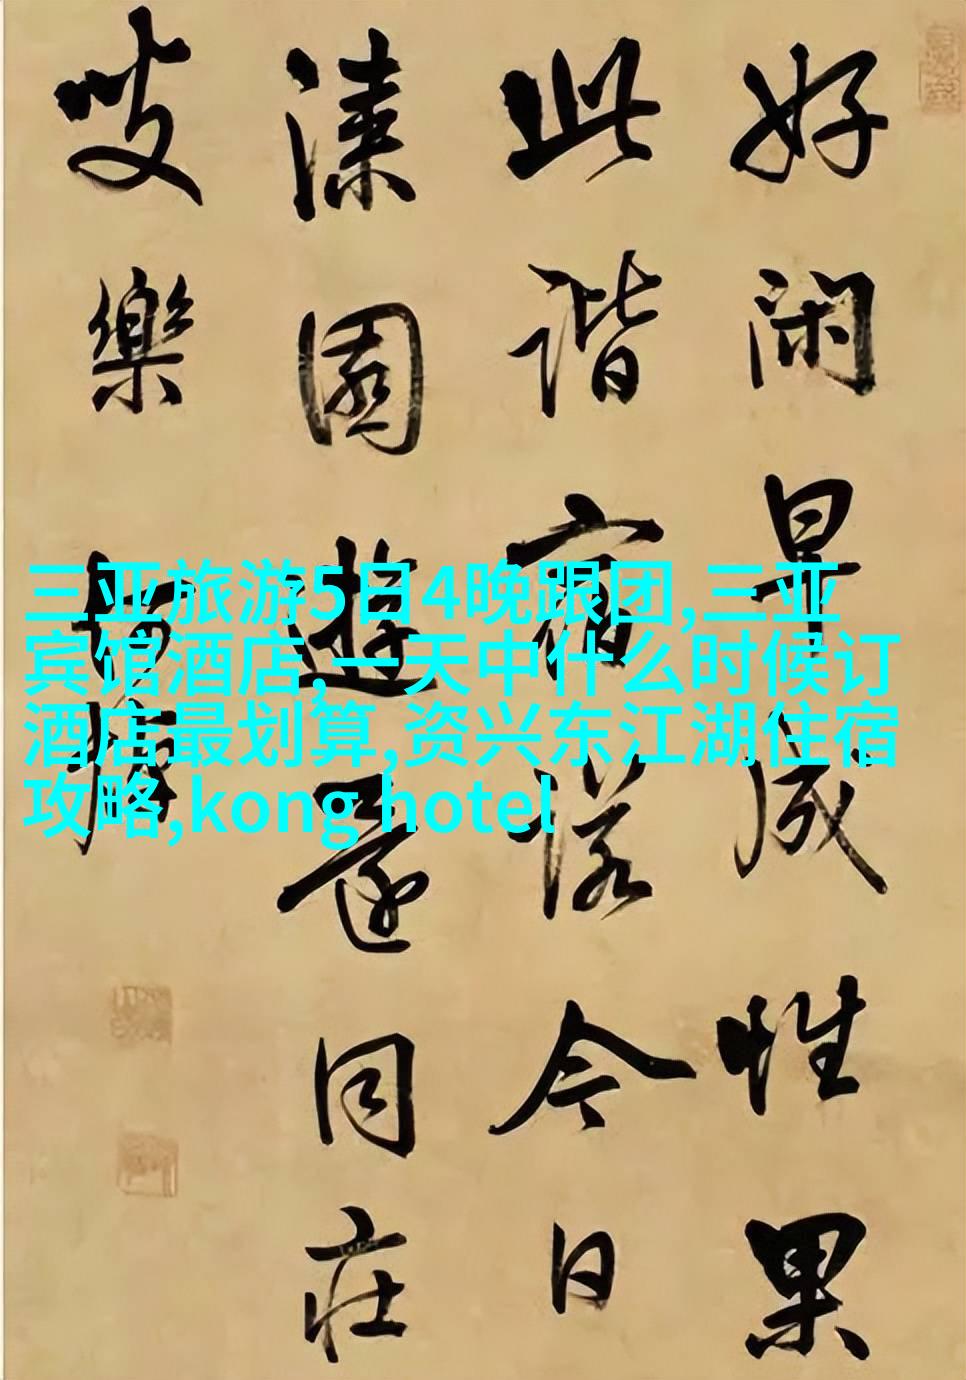 好闲早成性果
此谐宿诺今日
漆園遊還同庄
叟樂
三亚旅游5日4晚跟团,三亚
宾馆酒店,一天中什么时候订
酒店最划算,资兴东江湖住宿
攻略,kong hotel